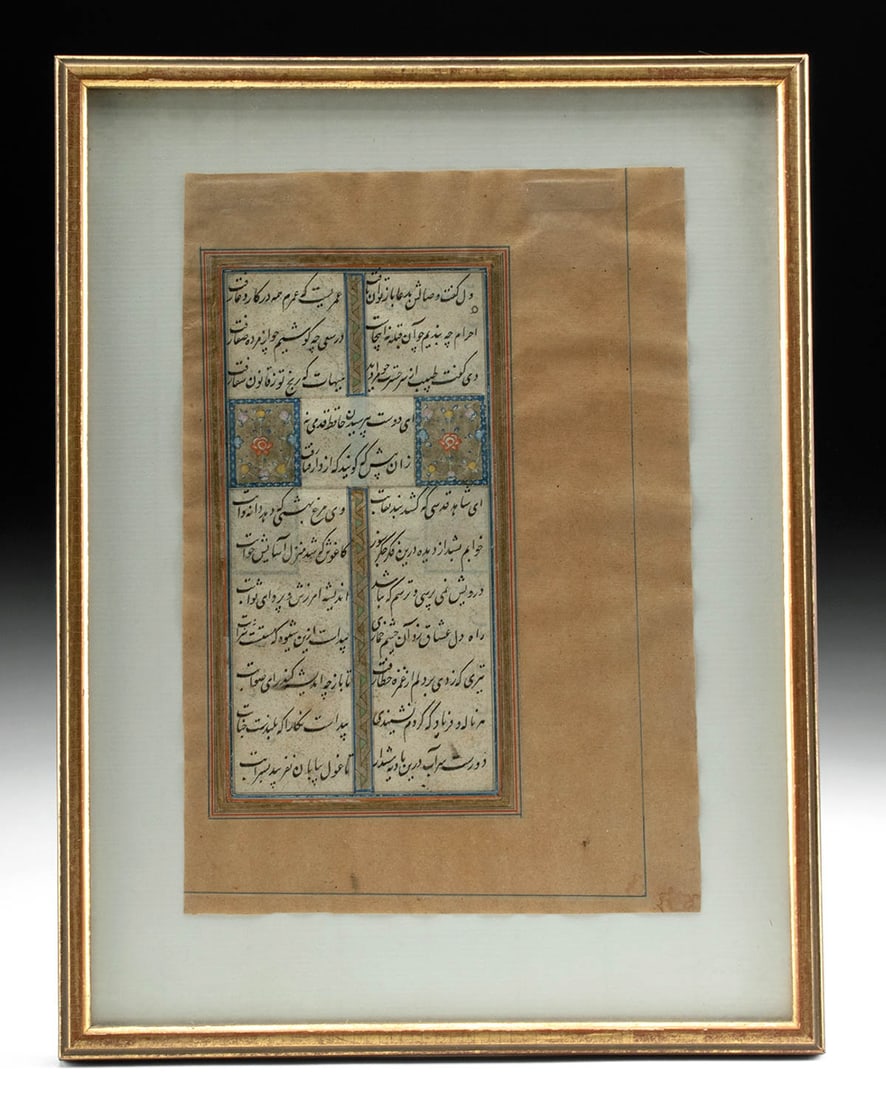 دل گفت وصالش بدعا باز توان یافت عمریست که عمرم همه در کار دعا رفت
احرام چه بندیم چو آن قبله نه اینجاست در سعی چه کوشیم چو از مروه صفا رفت
دی گفت طبیب از سر حسرت چو مرا دید هیهات که رنج تو ز قانون شفا رفت
ای دوست بپرسیدن حافظ قدمی نه
زان پیش که گویند که از دار فنا رفت
ای شاهد قدسی که کشد بند نقابت وی مرغ بهشتی که دهد دانه و آبت
خوابم بشد از دیده درین فکر جگر سوز کاغوش که شد منزل آسایش و خوابت
درویش نمی پرسی و ترسم که نباشد اندیشه آمرزش و پروای ثوابت
راه دل عشاق زد آن چشم خماری پیداست ازین شیوه که مستست شرابت
تیری که زدی بر دلم از غمزه خطا رفت تا باز چه اندیشه کند رای صوابت
هر ناله و فریاد که کردم نشنیدی پیداست نگارا که بلندست جنابت
دورست سر آب درین بادیه هشدار تا غول بیابان نفریبد بسرابت